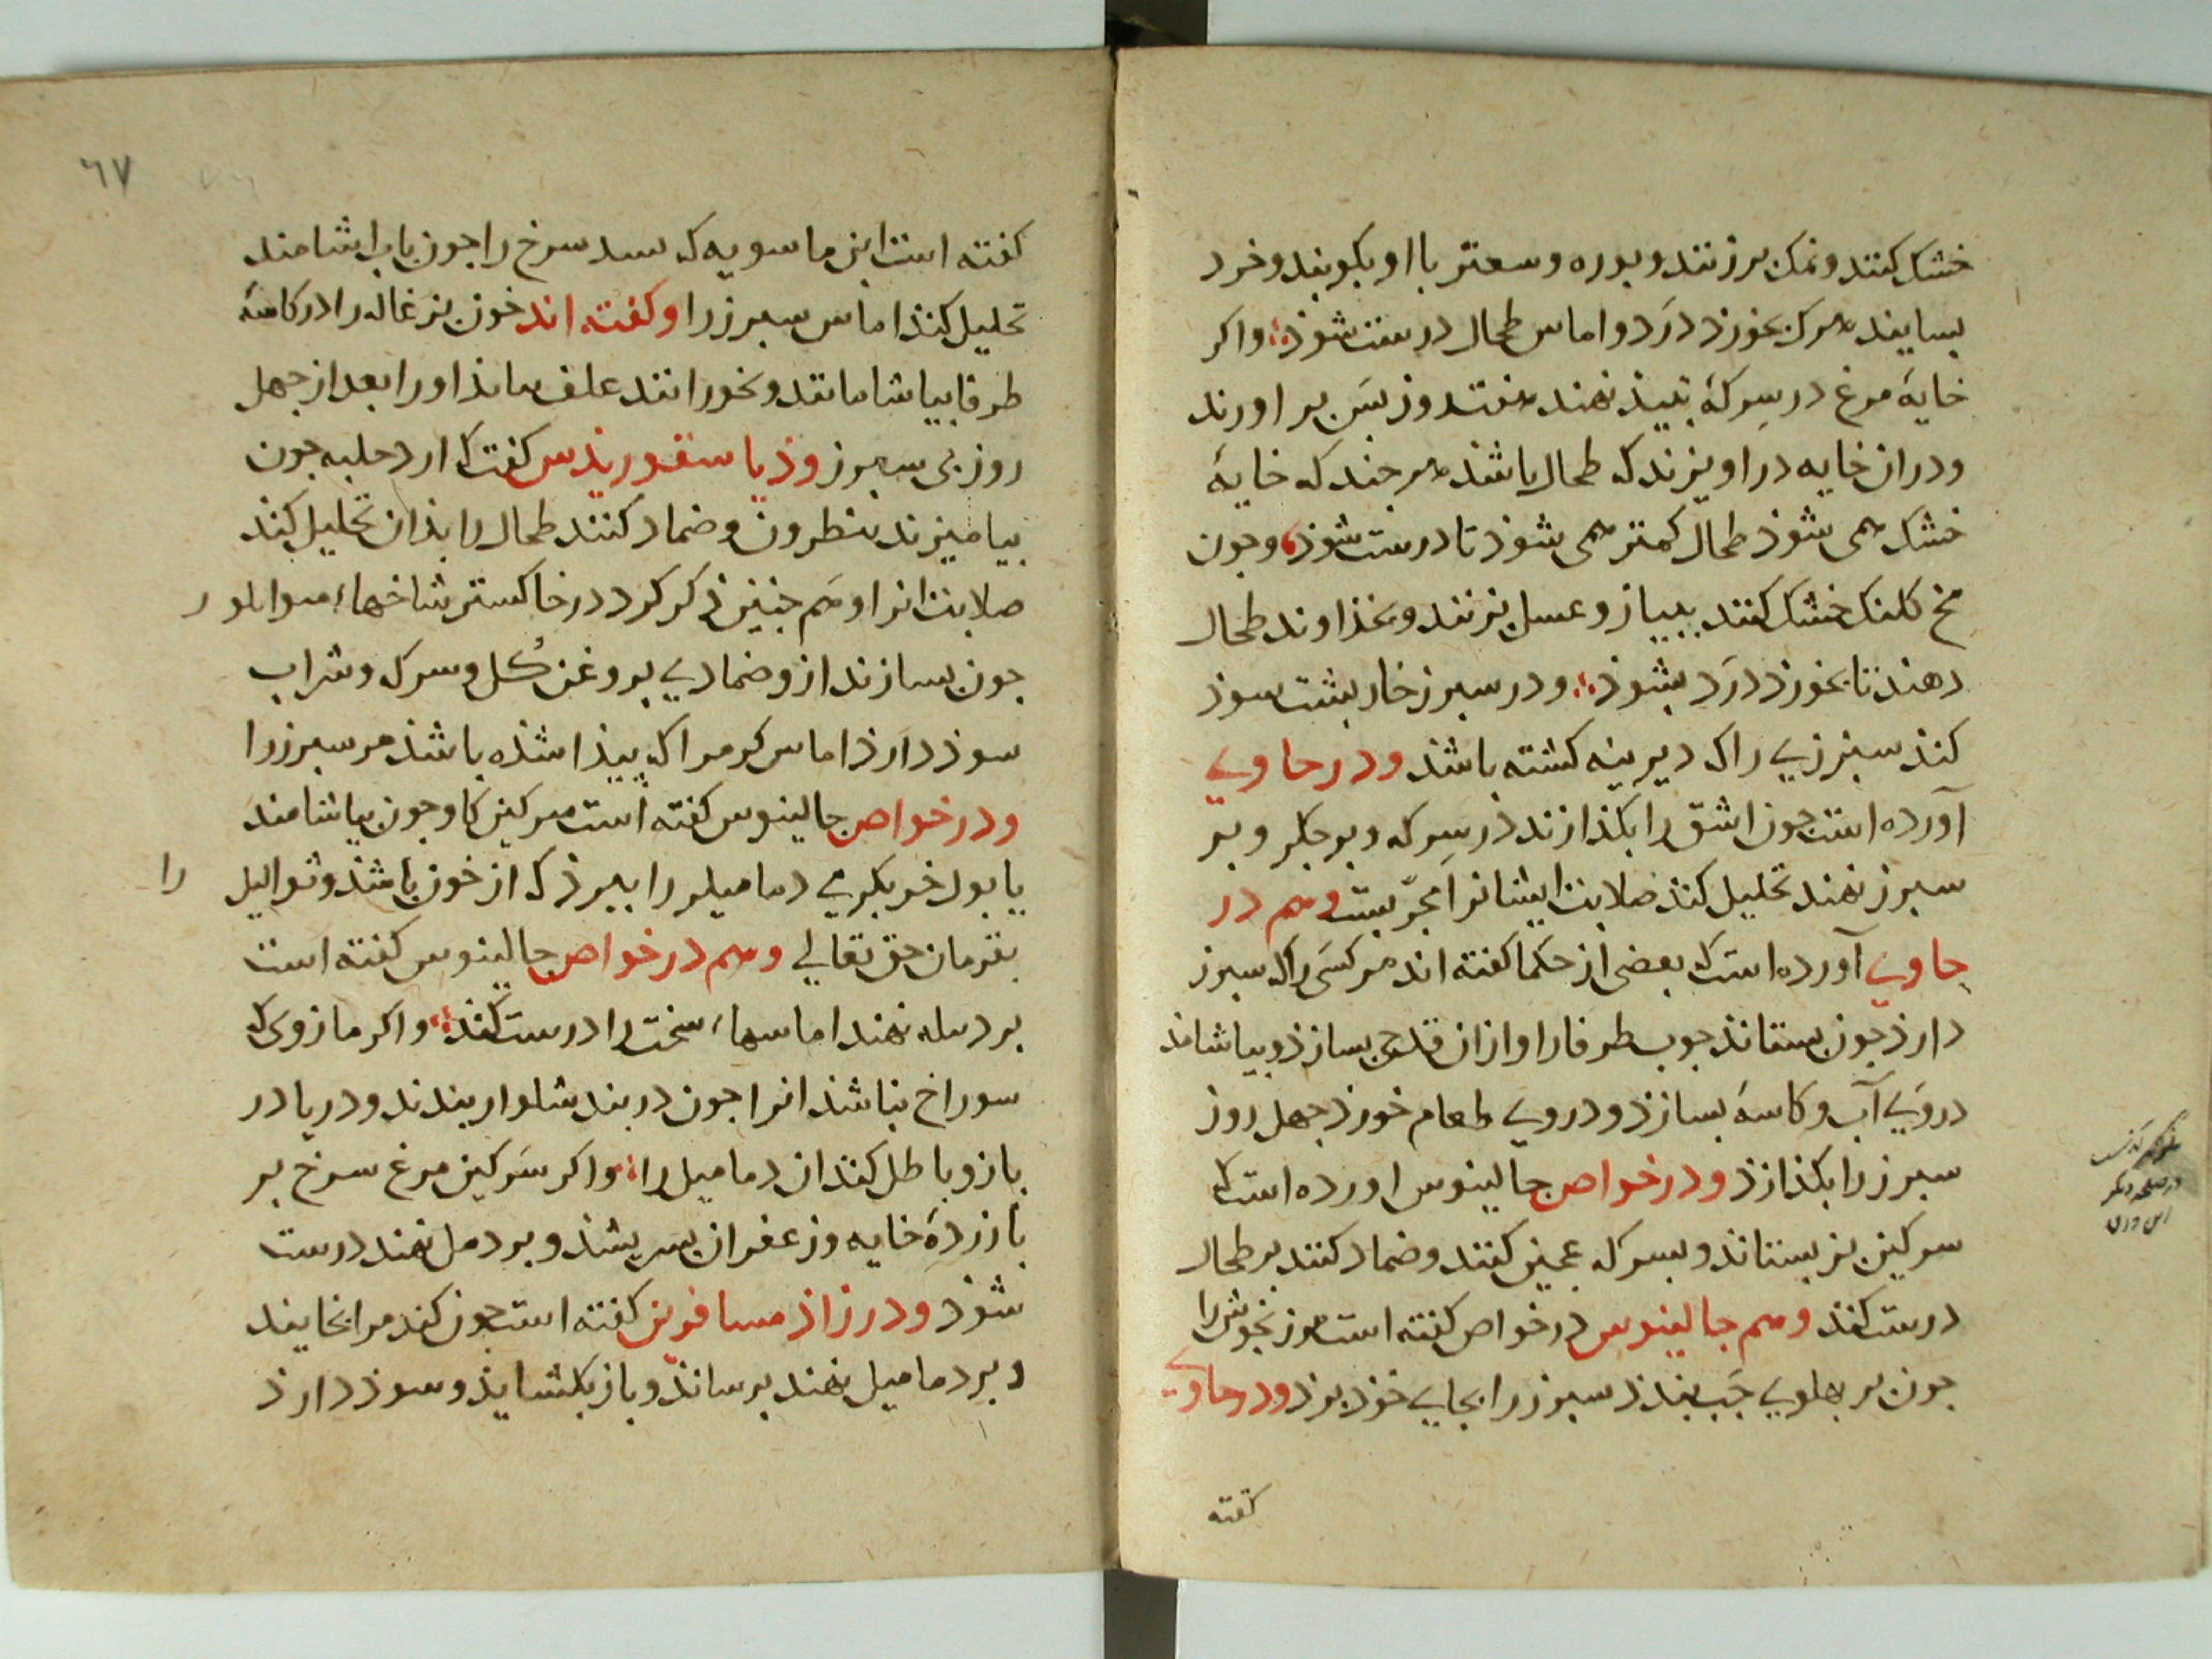 خشک کنند و نمک برزنند و بوره و سعتر با او بکوبند و خرد
بسایند هرک بخورذ درَد و اماس طحال درست شوذ و اکر
خایهٔ مرغ در سِرکهٔ نبیذ نهند هفت روز بسَ بر اورند
و دران خایه دراویزند که طحال باشذ هر جند که خایهٔ
خشک همی شوذ طحال کمتر همی شوذ تا درست شوذ و جون
مخ کلنک خشک کنند ببیاز و عسل بزنند و بخذاوند طحال
دهند تا بخورذ درَد بشوذ و در سبرز خاربشت سوذ
کند سبرزی را که دیرینه کشته باشذ و در حاوی
آورده است جون اشق را بکذازند در سِرکه و بر جکر و بر
سبرز نهند تحلیل کند صلابت ایشانرا مجرّبست و هم در
حاوی آورده است که بعضی از حکما کفته اند هر کسَی را که سبرز
دارذ جون بستانذ جوب طرفا را و ازان قدح بسازذ و بیاشامذ
در وَی آب و کاسهَ بسازذ و در وی طعام خورذ جهل روز
سبرز را بکذازذ و در خواص جالینوس اورده است که
سرکین بز بستاند و بسرکه عجین کنند و ضماد کنند بر طحال
درست کند و هم جالینوس در خواص کفته است مرزنجوش را
جون بر بهلوی جَب بندند سبرز را بجای خوذ برد و در حاوی
کفته
٦٧
کفته است ابن ماسویه که سبد سرخ را جون باب اشامند
تحلیل کند اماس سبرز را و کفته اند خون بزغاله را در کاسهٔ
طرفا بیاشامانند و بخورانند علف مانذ او را بعد از جهل
روز بی سبرز و ذیاسقوریذس کفت که ارد حلبه جون
بیامیزند بنطرون و ضماد کنند طحال را بذان تحلیل کند
صلابت انرا و هَم جنین ذکر کرد در خاکستر شاخهاء
جون بسازند ازو ضمادی بروغن کُل و سرکه و شراب
سوذ دارَذ اماس کرم را که بیذا شذه باشذ مر سبرز را
و در خواص جالینوس کفته است سرکین کاو جون بیاشامند
یا بول خر بکری دمامیل را ببرذ که از خون باشذ و ثوالیل را
بفرمان حق تعالی و هم در خواص جالینوس کفته است
بر دمله نهند اماسهاء سخت را درست کند و اکر مازوی که
سوراخ بناشذ انرا جون در بند شلوار بندند و در یا در
بازو باطل کند ان دمامیل را و اکر سَرکین مرغ سرخ بر
با زردهٔ خایه و زعفران بسریشند و بر دمل نهند درست
شوذ و در زاذ مسافرین کفته است جون کندم را بخایند
و بر دمامیل نهند برساند و باز بکشایذ و سوذ دارذ